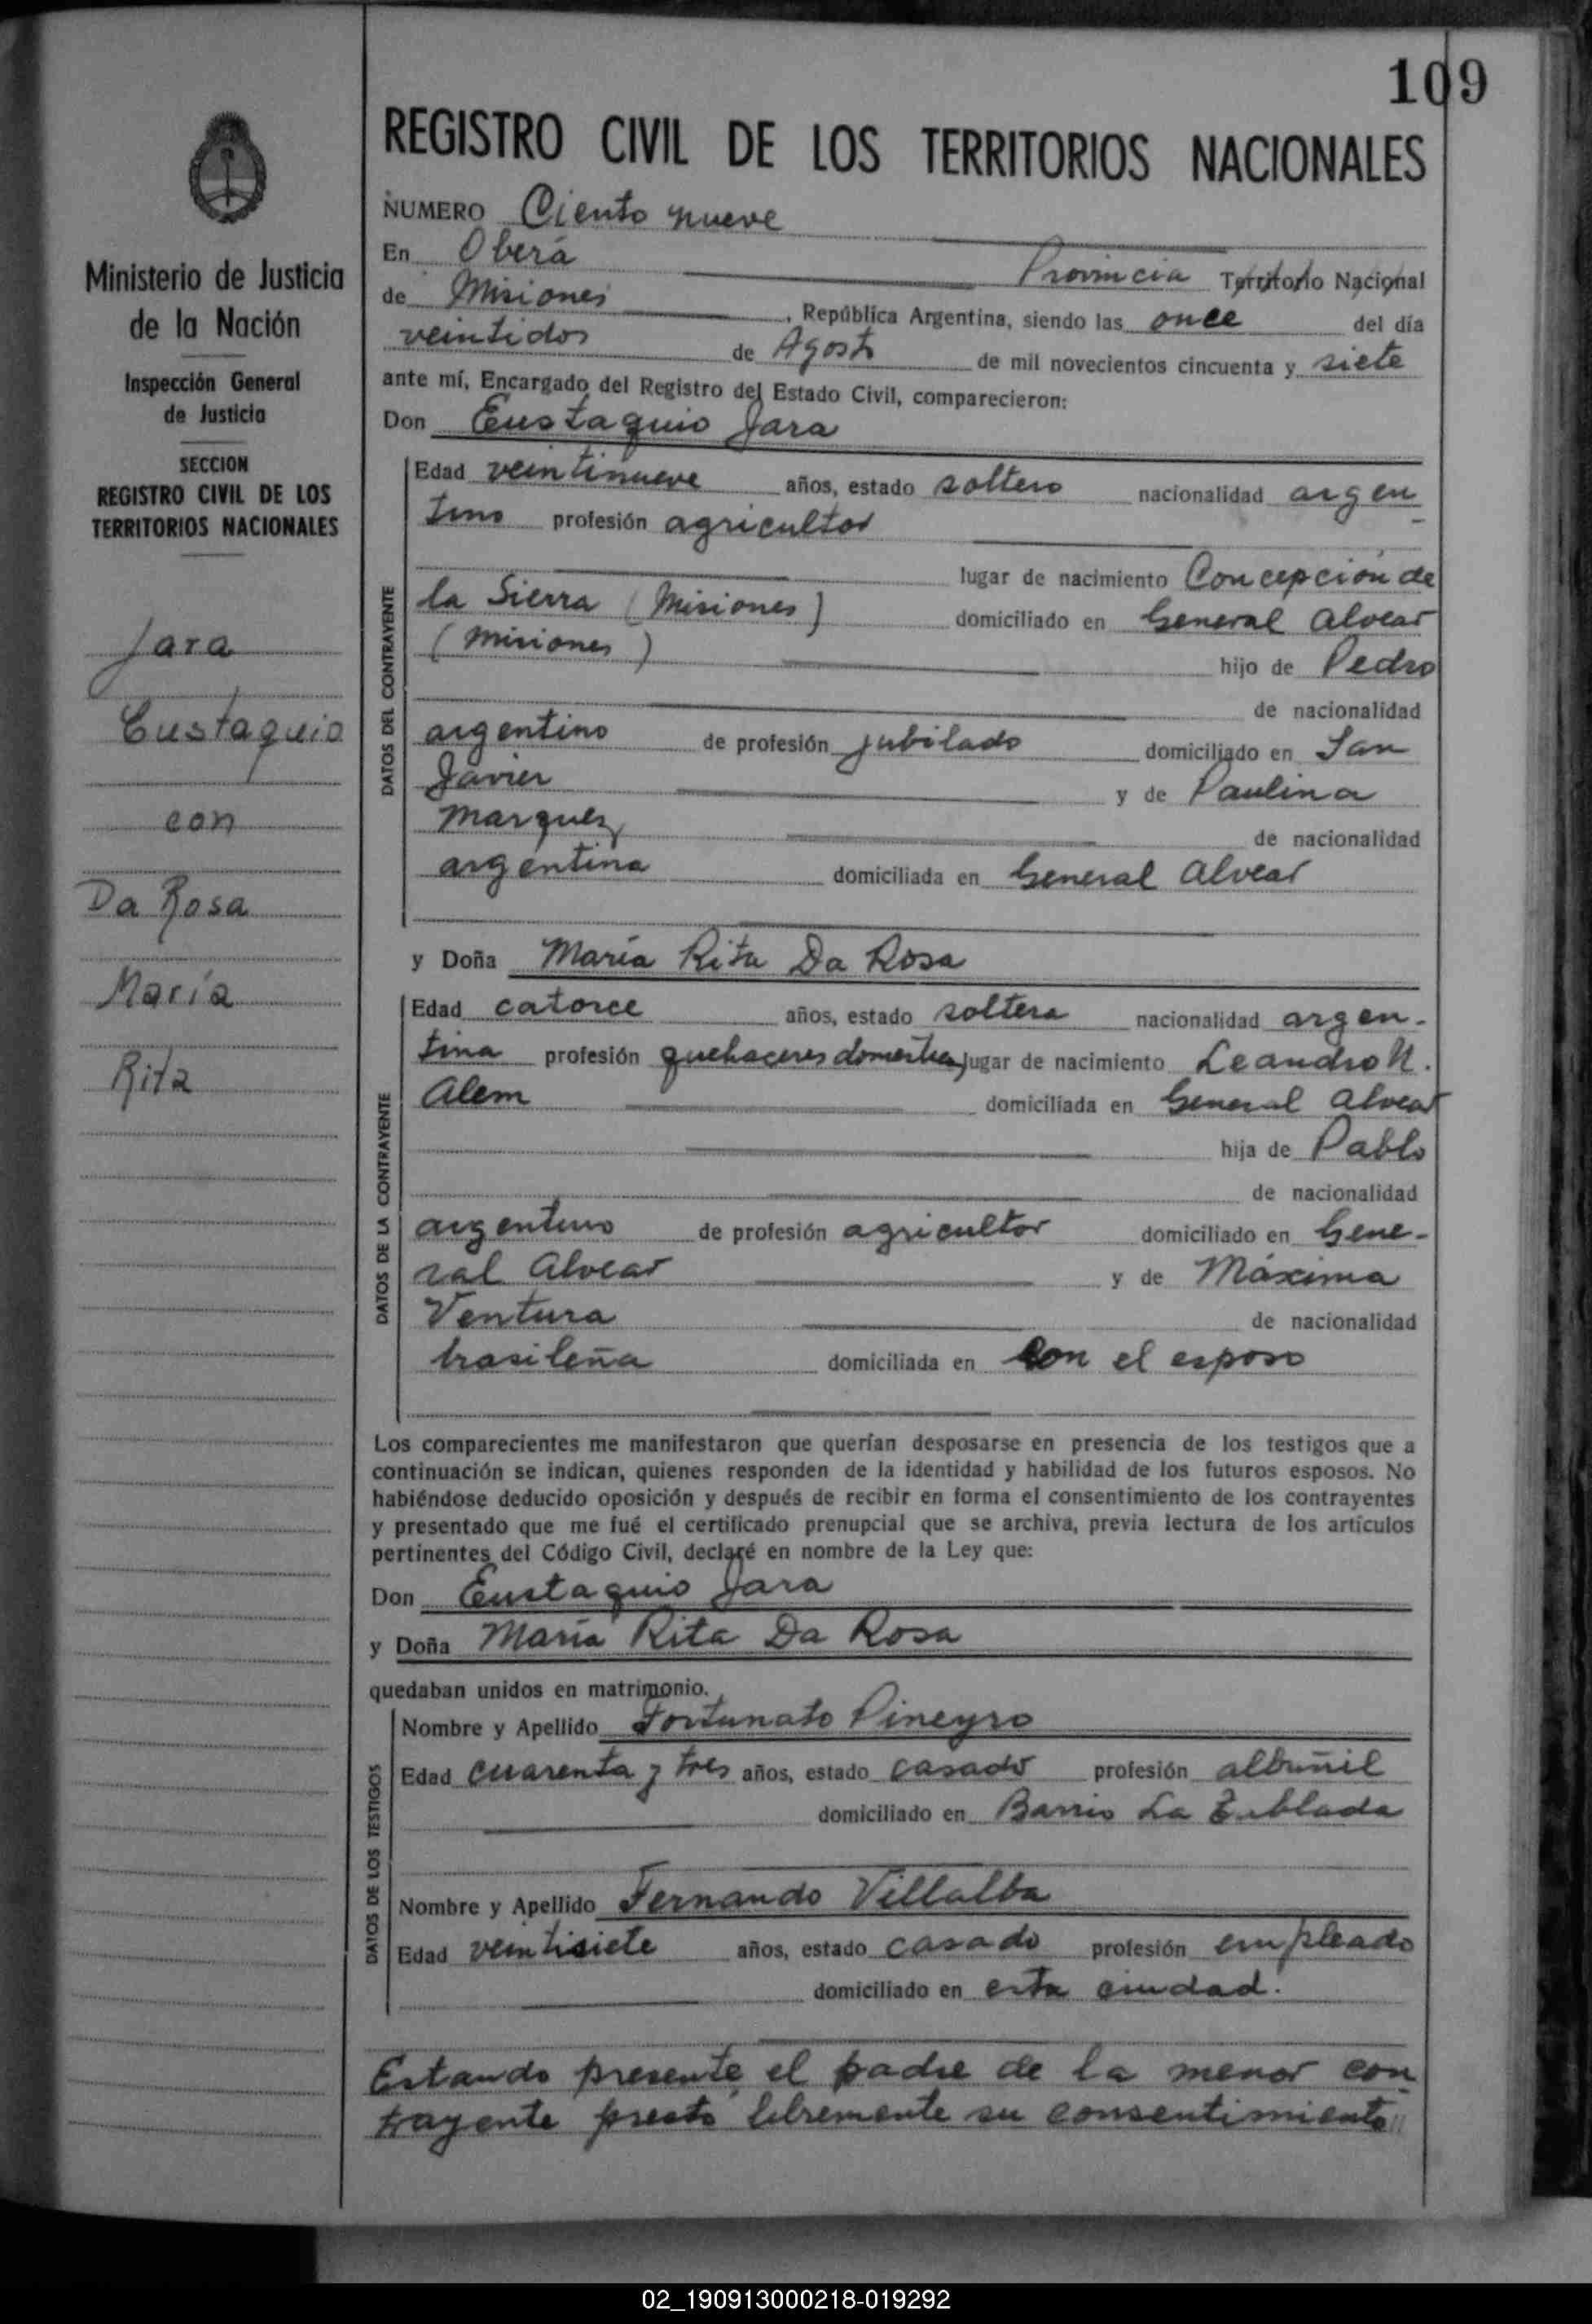 109
REGISTRO CIVIL DE LOS TERRITORIOS NACIONALES
NUMERO Ciento nueve
En Oberá Provincia Territorio Nacional
de Misiones, República Argentina, siendo las once del día
veintidos de Agosto de mil novecientos cincuenta y siete
ante mí, Encargado del Registro del Estado Civil, comparecieron:
Don Eustaquio Jara
Edad veintinueve años, estado soltero nacionalidad argen
tino profesión agricultor
lugar de nacimiento Concepción de
la Sierra (Misiones) domiciliado en General Alvear
(Misiones) hijo de Pedro
de nacionalidad
argentino de profesión jubilado domiciliado en San
Javier y de Paulina
Marquez de nacionalidad
argentina domiciliada en General Alvear
DATOS DEL CONTRAYENTE
y Doña María Rita Da Rosa
Edad catorce años, estado soltera nacionalidad argen-
tina profesión quehaceres domesticos lugar de nacimiento Leandro N.
Alem domiciliada en General Alvear
hija de Pablo
de nacionalidad
argentino de profesión agricultor domiciliado en Gene-
ral Alvear y de Máxima
Ventura de nacionalidad
brasileña domiciliada en con el esposo
DATOS DE LA CONTRAYENTE
Los comparecientes me manifestaron que querían desposarse en presencia de los testigos que a
continuación se indican, quienes responden de la identidad y habilidad de los futuros esposos. No
habiéndose deducido oposición y después de recibir en forma el consentimiento de los contrayentes
y presentado que me fué el certificado prenupcial que se archiva, previa lectura de los artículos
pertinentes del Código Civil, declaré en nombre de la Ley que:
Don Eustaquio Jara
y Doña María Rita Da Rosa
quedaban unidos en matrimonio.
Nombre y Apellido Fortunato Pineyro
Edad cuarenta y tres años, estado casado profesión albañil
domiciliado en Barrio La Tablada
Nombre y Apellido Fernando Villalba
Edad veintisiete años, estado casado profesión empleado
domiciliado en esta ciudad.
DATOS DE LOS TESTIGOS
Estando presente el padre de la menor con
trayente prestó libremente su consentimiento
Ministerio de Justicia
de la Nación
Inspección General
de Justicia
SECCION
REGISTRO CIVIL DE LOS
TERRITORIOS NACIONALES
Jara
Eustaquio
con
Da Rosa
María
Rita
02_190913000218-019292